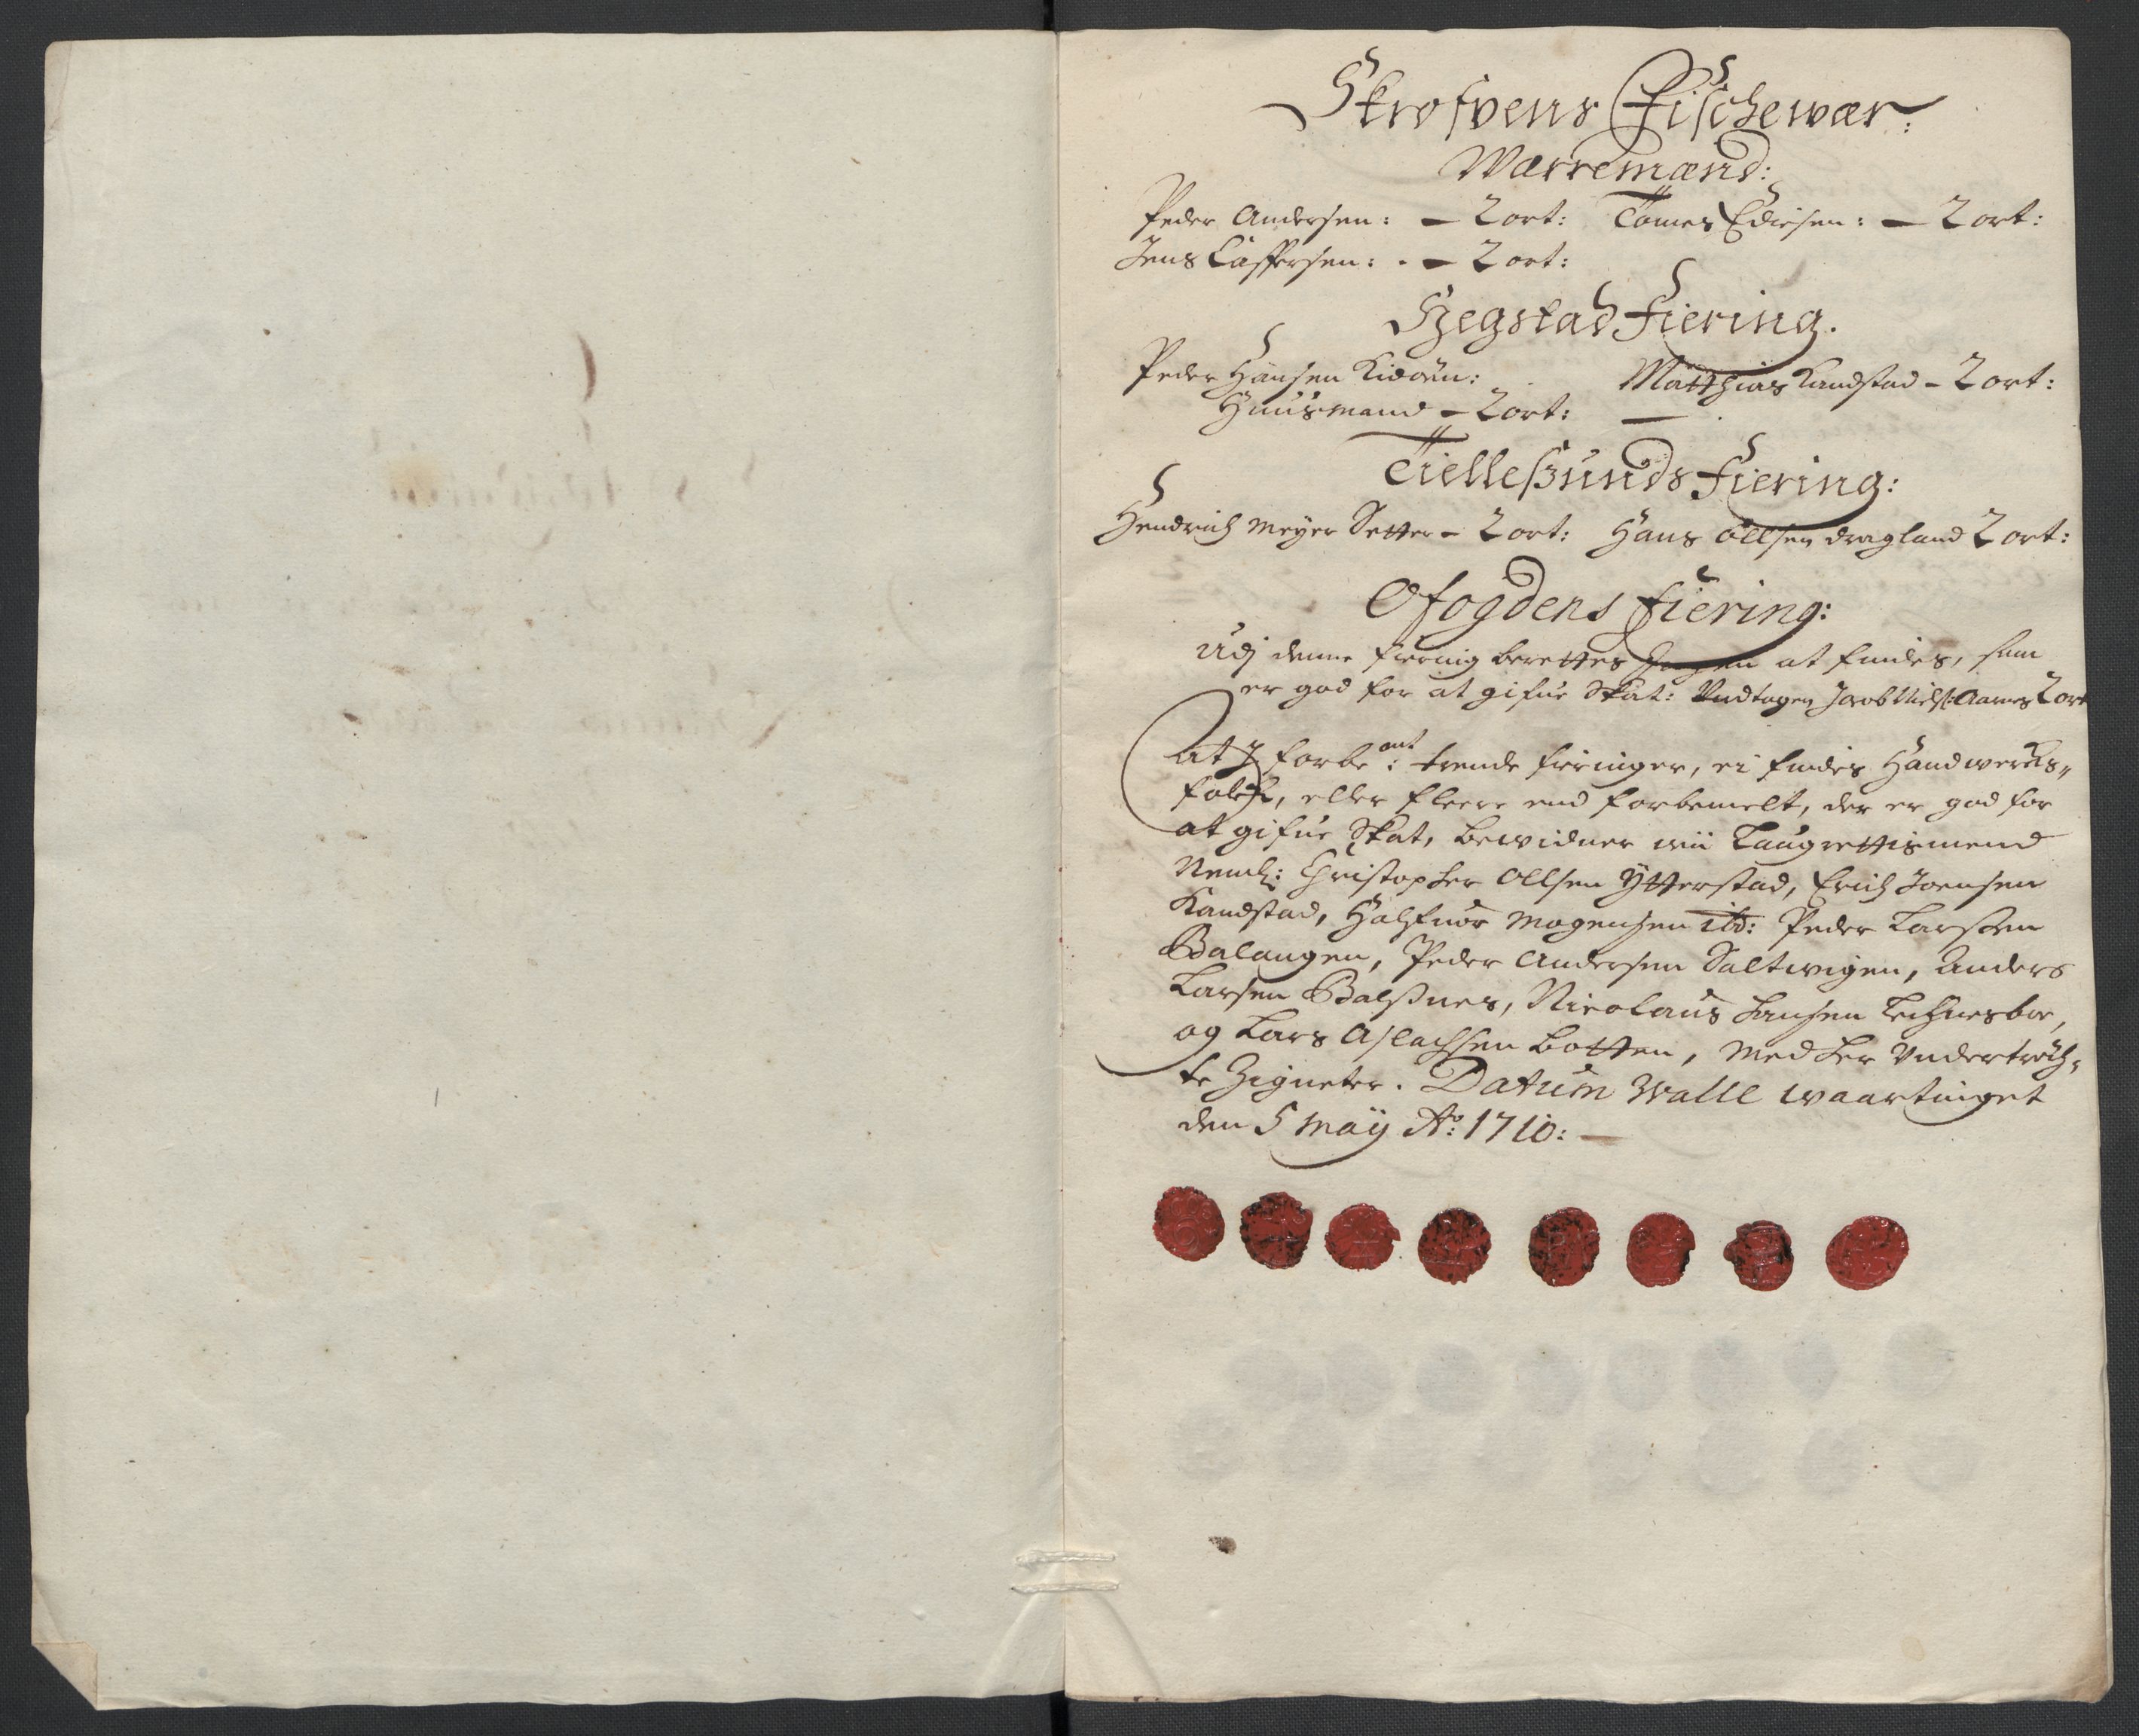 Skrofvens Fischewær:
Wærremænd:
Peder Andersen: – 2 ort: Tomes Edisen: – 2 ort:
Jens Cassersen: . – 2 ort:
Hegstad Fiering.
Peder Hansen Kidøen: Matthias Kandstad – 2 ort:
Huusmand – 2 ort: –
TielleSunds Fiering:
Hendrich Meyer Setter – 2 ort: Hans Ollsen Dragland 2 ort:
Ofogdens Fiering:
Udj denne Fiering berettes Jngen at findes, som
er god for at gifue Skat: Undtagen Jacob Niels: Aarnes 2 ort
At J forbe:mt trende fieringer, ei findes Handwercks„
folch, eller fleere end forbemelt, der er god for
at gifue Skat, bewidner wii Laugrettismend
Neml: Christopher Ollsen Ytterstad, Erich Joensen
Kandstad, Halfuor Mogensen ibd: Peder Larssen
Balangen, Peder Andersen Saltwigen, Anders
Larsen Balssnes, Nicolaus Hansen
og Lars Aslachsen Botten, med her Undertrych„
te Zigneter. Datum Walle waartinget
den 5 Maij Ao: 1710: –